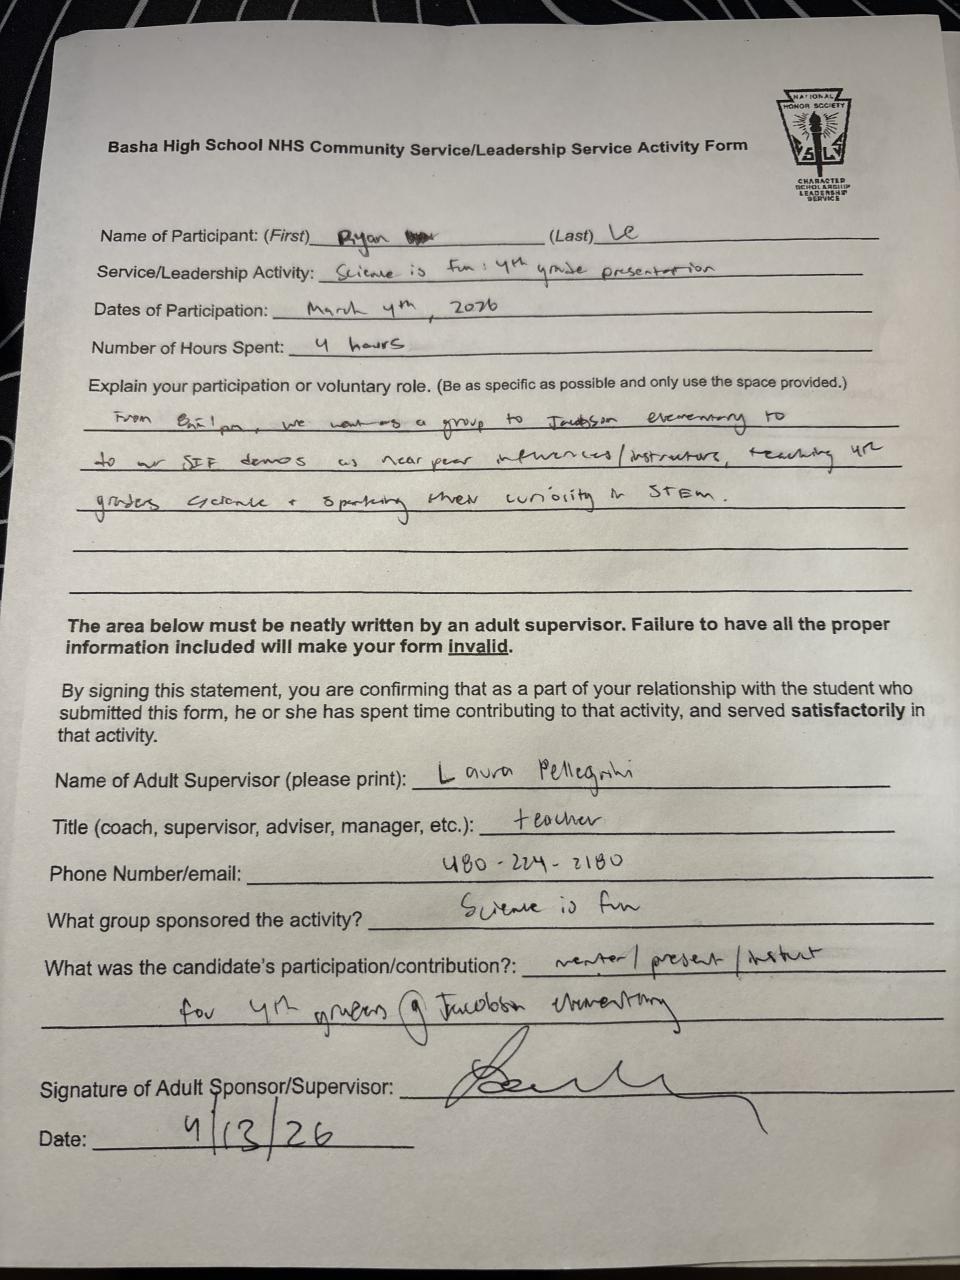 NATIONAL
HONOR SOCIETY
S L S
CHARACTER
SCHOLARSHIP
LEADERSHIP
SERVICE
Basha High School NHS Community Service/Leadership Service Activity Form
Name of Participant: (First) Ryan (Last) Le
Service/Leadership Activity: Science is Fun: 4th grade presentation
Dates of Participation: March 4th, 2026
Number of Hours Spent: 4 hours
Explain your participation or voluntary role. (Be as specific as possible and only use the space provided.)
From we went as a group to Jacobson elementary to
do our SIF demos as near peer influences/instructors, teaching 4th
graders science + sparking their curiosity in STEM.
The area below must be neatly written by an adult supervisor. Failure to have all the proper
information included will make your form invalid.
By signing this statement, you are confirming that as a part of your relationship with the student who
submitted this form, he or she has spent time contributing to that activity, and served satisfactorily in
that activity.
Name of Adult Supervisor (please print): Laura Pellegrini
Title (coach, supervisor, adviser, manager, etc.): teacher
Phone Number/email: 480-224-2180
What group sponsored the activity? Science is fun
What was the candidate's participation/contribution?: mentor/present/instruct
for 4th graders @ Jacobson elementary
Signature of Adult Sponsor/Supervisor:
Date: 4/13/26